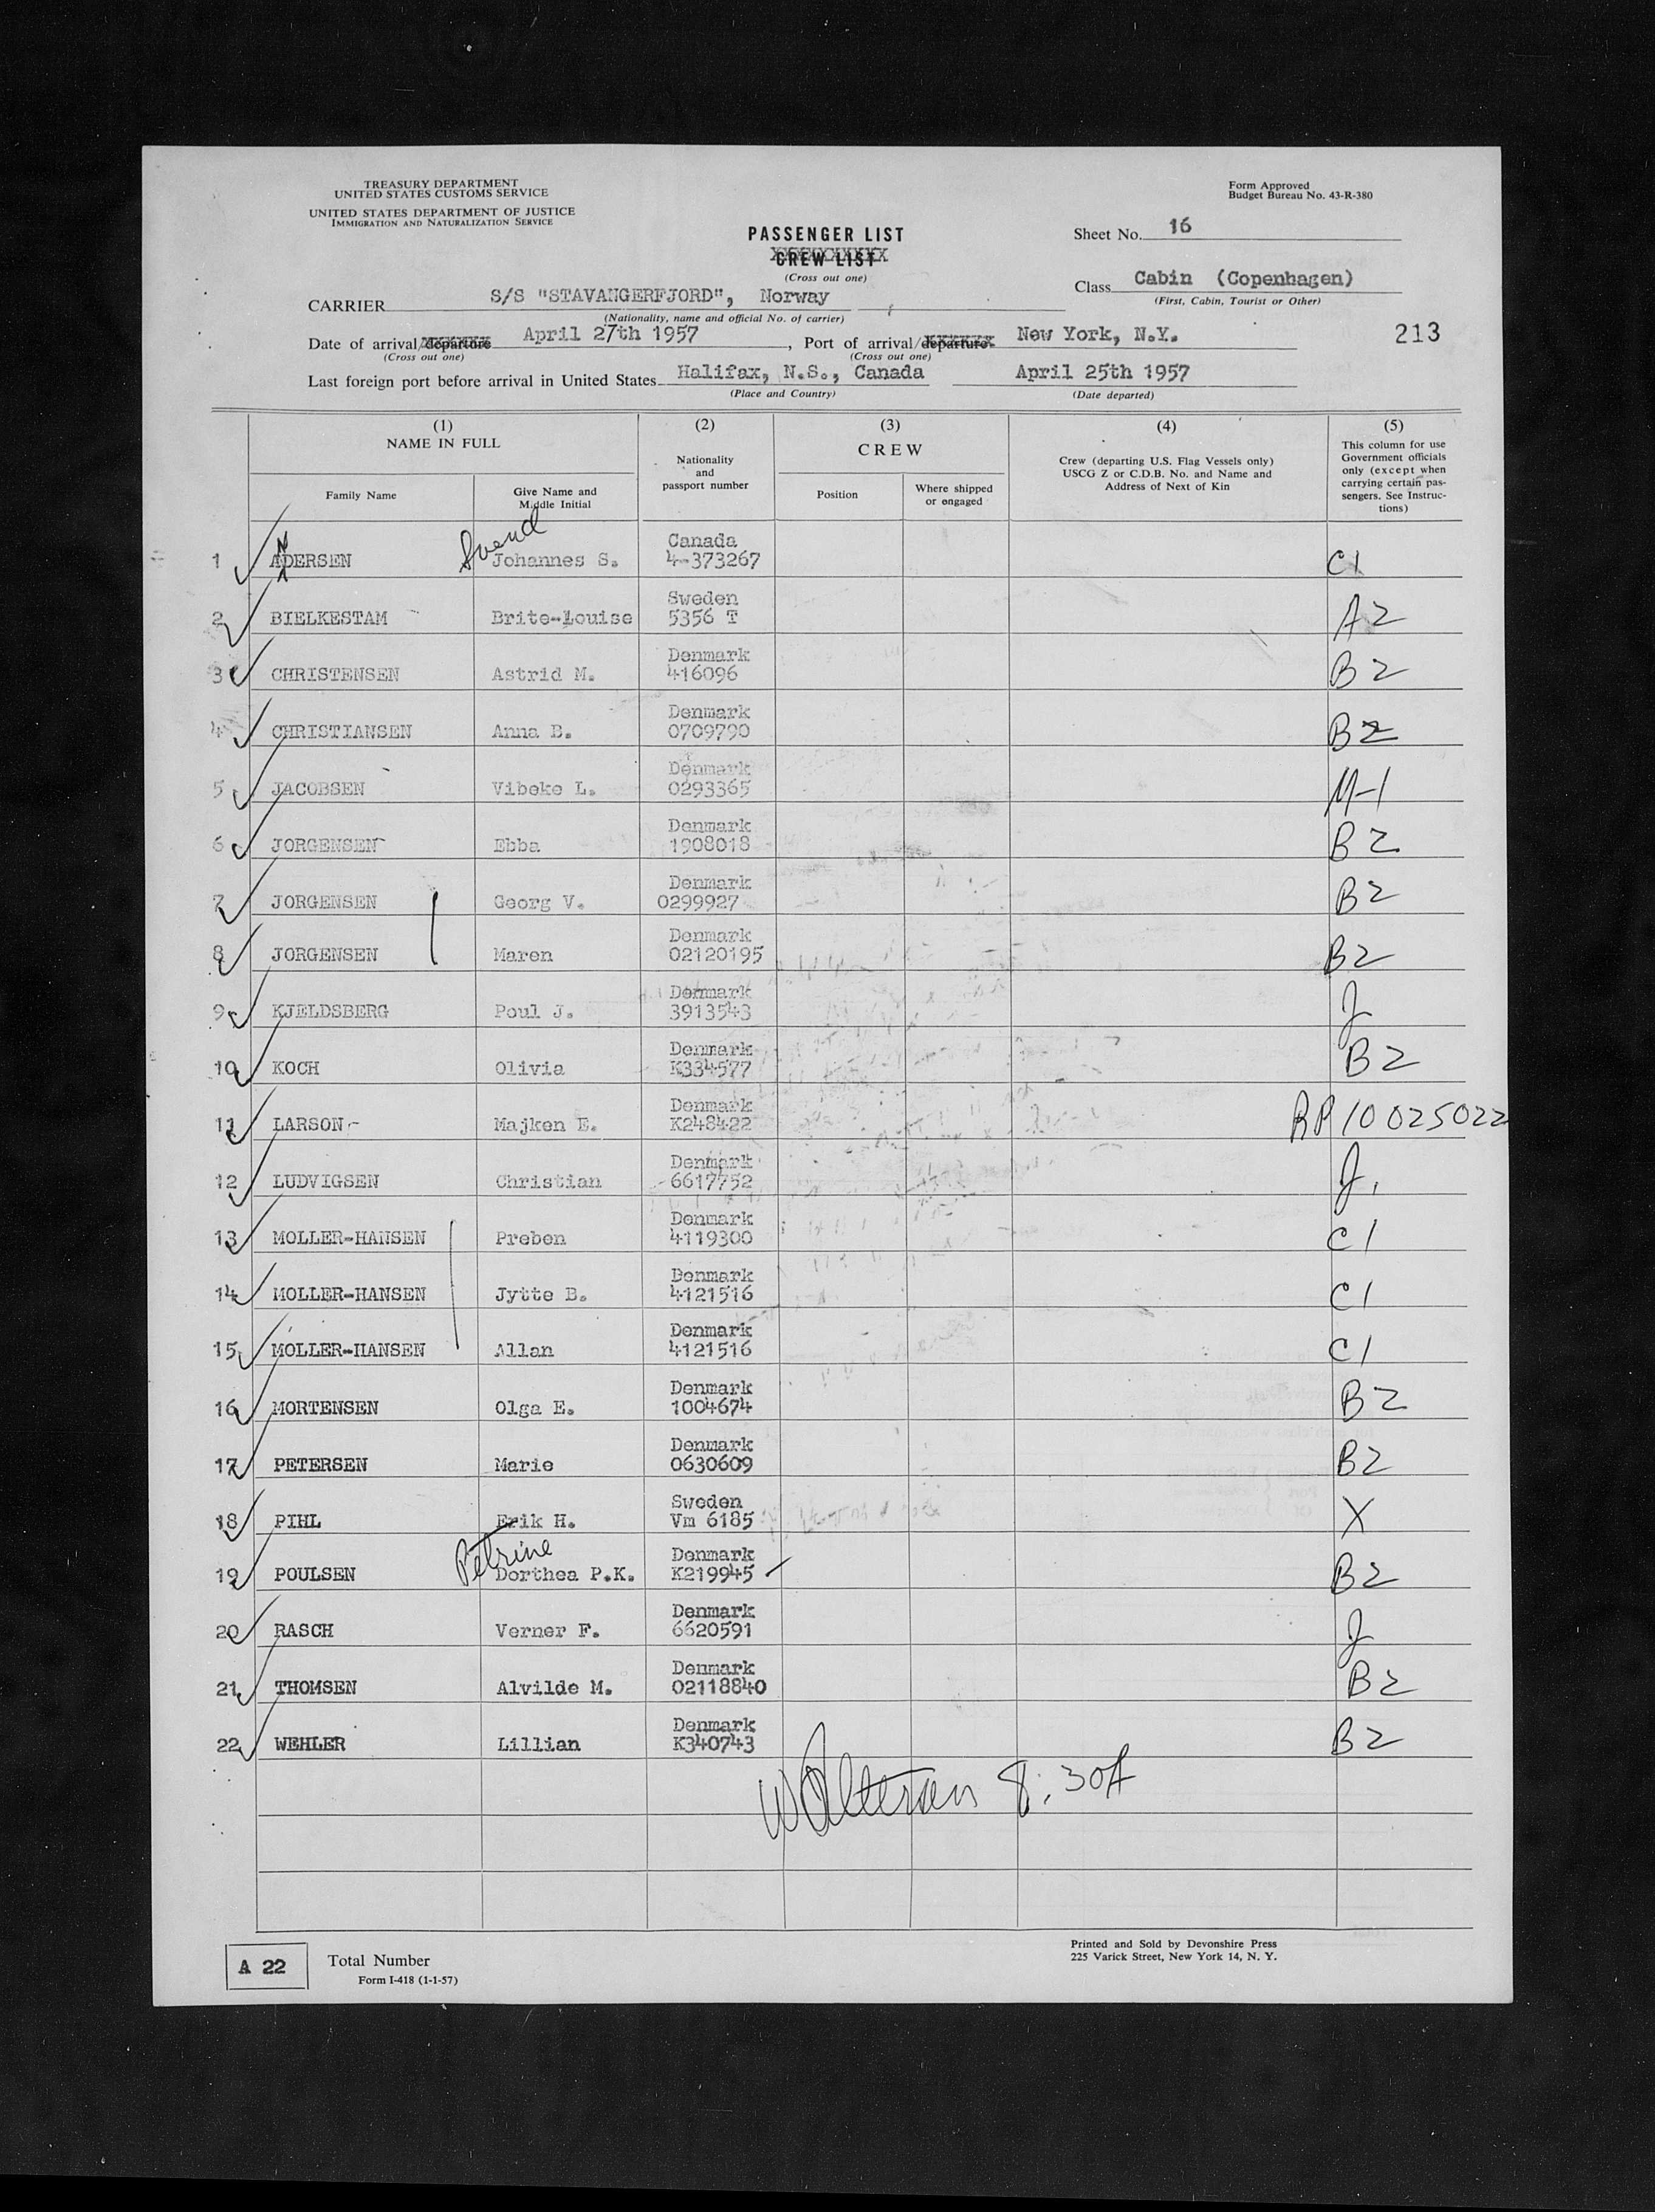 TREASURY DEPARTMENT
UNITED STATES CUSTOMS SERVICE
UNITED STATES DEPARTMENT OF JUSTICE
IMMIGRATION AND NATURALIZATION SERVICE
Form Approved
Budget Bureau No. 43-R-380
PASSENGER LIST
CREW LIST
(Cross out one)
Sheet No. 16
Class Cabin (Copenhagen)
(First, Cabin, Tourist or Other)
CARRIER S/S "STAVANGERFJORD", Norway
(Nationality, name and official No. of carrier)
Date of arrival/departure April 27th 1957, Port of arrival/departure New York, N.Y.
(Cross out one) (Cross out one)
213
Last foreign port before arrival in United States Halifax, N.S., Canada April 25th 1957
(Place and Country) (Date departed)
(1) (2) (3) (4) (5)
NAME IN FULL
Family Name
Give Name and Middle Initial
Nationality and passport number
CREW
Position
Where shipped or engaged
Crew (departing U.S. Flag Vessels only)
USCG Z or C.D.B. No. and Name and
Address of Next of Kin
This column for use
Government officials
only (except when
carrying certain pas-
sengers. See Instruc-
tions)
Svend
1 ANDERSEN Johannes S. Canada 4-373267 C1
2 BIELKESTAM Brite-Louise Sweden 5356 T A2
3 CHRISTENSEN Astrid M. Denmark 416096 B2
4 CHRISTIANSEN Anna B. Denmark 0709790 B2
5 JACOBSEN Vibeke L. Denmark 0293365 M-1
6 JORGENSEN Ebba Denmark 1908018 B2
7 JORGENSEN Georg V. Denmark 0299927 B2
8 JORGENSEN Maren Denmark 02120195 B2
9 KJELDSBERG Poul J. Denmark 3913543 J
10 KOCH Olivia Denmark K334577 B2
11 LARSON Majken E. Denmark K248422 RP 10025022
12 LUDVIGSEN Christian Denmark 6617752 J1
13 MOLLER-HANSEN Preben Denmark 4119300 C1
14 MOLLER-HANSEN Jytte B. Denmark 4121516 C1
15 MOLLER-HANSEN Allan Denmark 4121516 C1
16 MORTENSEN Olga E. Denmark 1004674 B2
17 PETERSEN Marie Denmark 0630609 B2
18 PIHL Erik H. Sweden Vm 6185 X
Petrine
19 POULSEN Dorthea P.K. Denmark K219945 B2
20 RASCH Verner F. Denmark 6620591 J
21 THOMSEN Alvilde M. Denmark 02118840 B2
22 WEHLER Lillian Denmark K340743 B2
8:30A
A 22 Total Number
Form I-418 (1-1-57)
Printed and Sold by Devonshire Press
225 Varick Street, New York 14, N. Y.